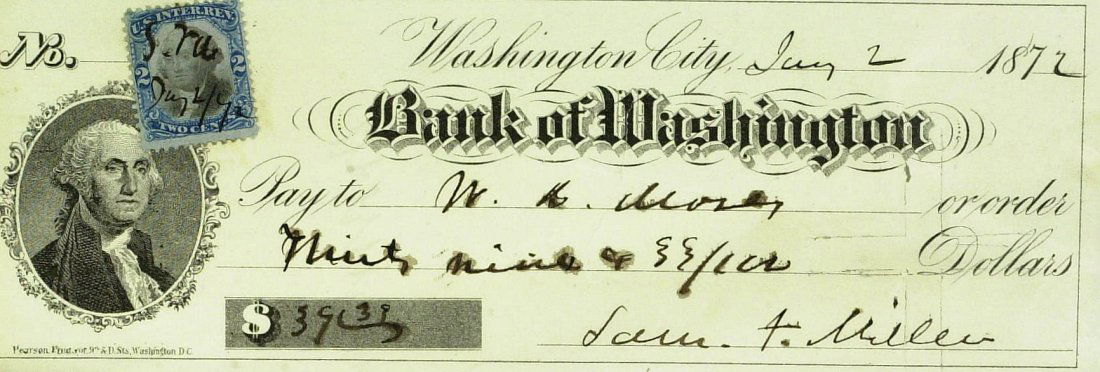 U.S. INTER. REV.
2 2
TWO CENTS
No.
Washington City, Jany 2 1872
Bank of Washington
Pay to W. Moses or order
Thirty nine & 33/100 Dollars
$ 39
Sam. F. Miller
Pearson, Print, cor. 9th & D. Sts, Washington D.C.